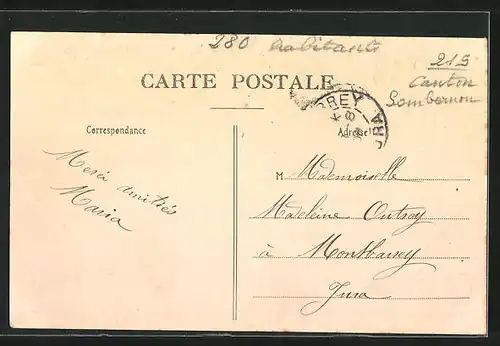 280 habitants
215
Canton
Sombernon
CARTE POSTALE
Correspondance
Adresse
Merci amitiés
Maria
M Mademoiselle
Madeleine Outrey
à Montbarrey
Jura